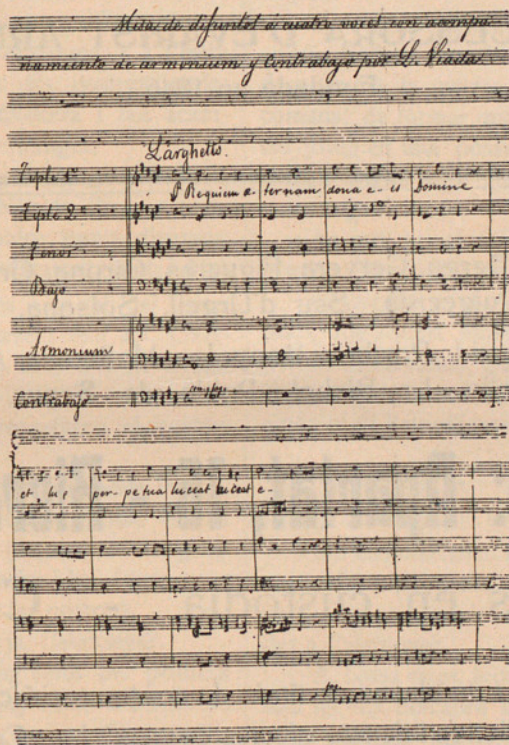 Misa de difuntos á cuatro voces con acompa
ñamiento de armonium y Contrabajo por L. Viada
Larghetto.
Tiple 1º
P Requiem æ- ternam dona e- is Domine
Tiple 2º
Tenor
Bajo
Armonium
Contrabajo
et lu e per- petua luceat luceat e-